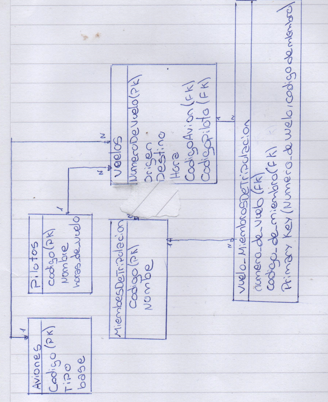 Aviones
Codigo (PK)
Tipo
base
Pilotos
codigo (PK)
Nombre
horas de vuelo
MiembrosDeTripulacion
Codigo (PK)
Nombre
Vuelos
NumeroDeVuelo (PK)
Origen
Destino
Hora
CodigoAvion (FK)
CodigoPiloto (FK)
Vuelo_MiembrosDeTripulacion
numero_de_vuelo (FK)
codigo_de_miembro (FK)
Primary Key (Numero_de_vuelo, codigo de miembro)
1
N
1
N
1
N
N